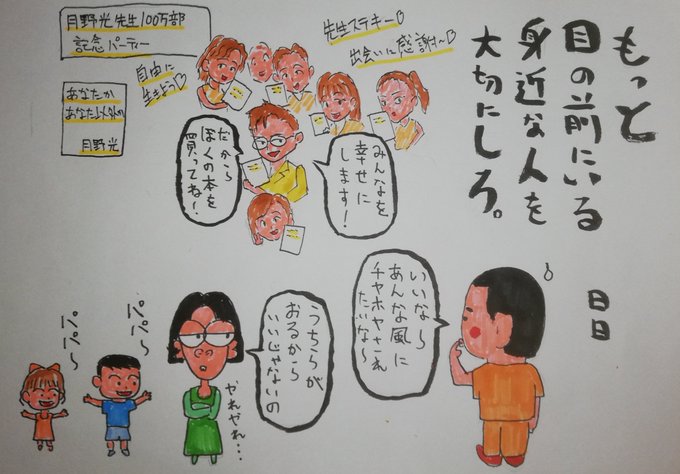 もっと
目の前にいる
身近な人を
大切にしろ。
日日
月野光先生100万部
記念パーティー
あなたか
あなた以外の
月野光
自由に
生きよう♡
先生ステキー♡
出会いに感謝〜♡
みんなを
幸せに
します!
だから
ぼくの本を
買ってね!
いいな〜
あんな風に
チヤホヤされ
たいな〜
うちらが
おるから
いいじゃないの
やれやれ…
パパ〜
パパ〜